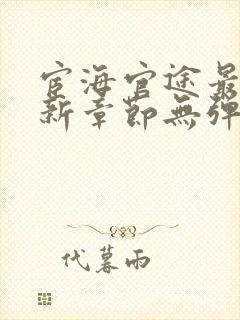 宦海官途最
新章節無彈
代暮雨